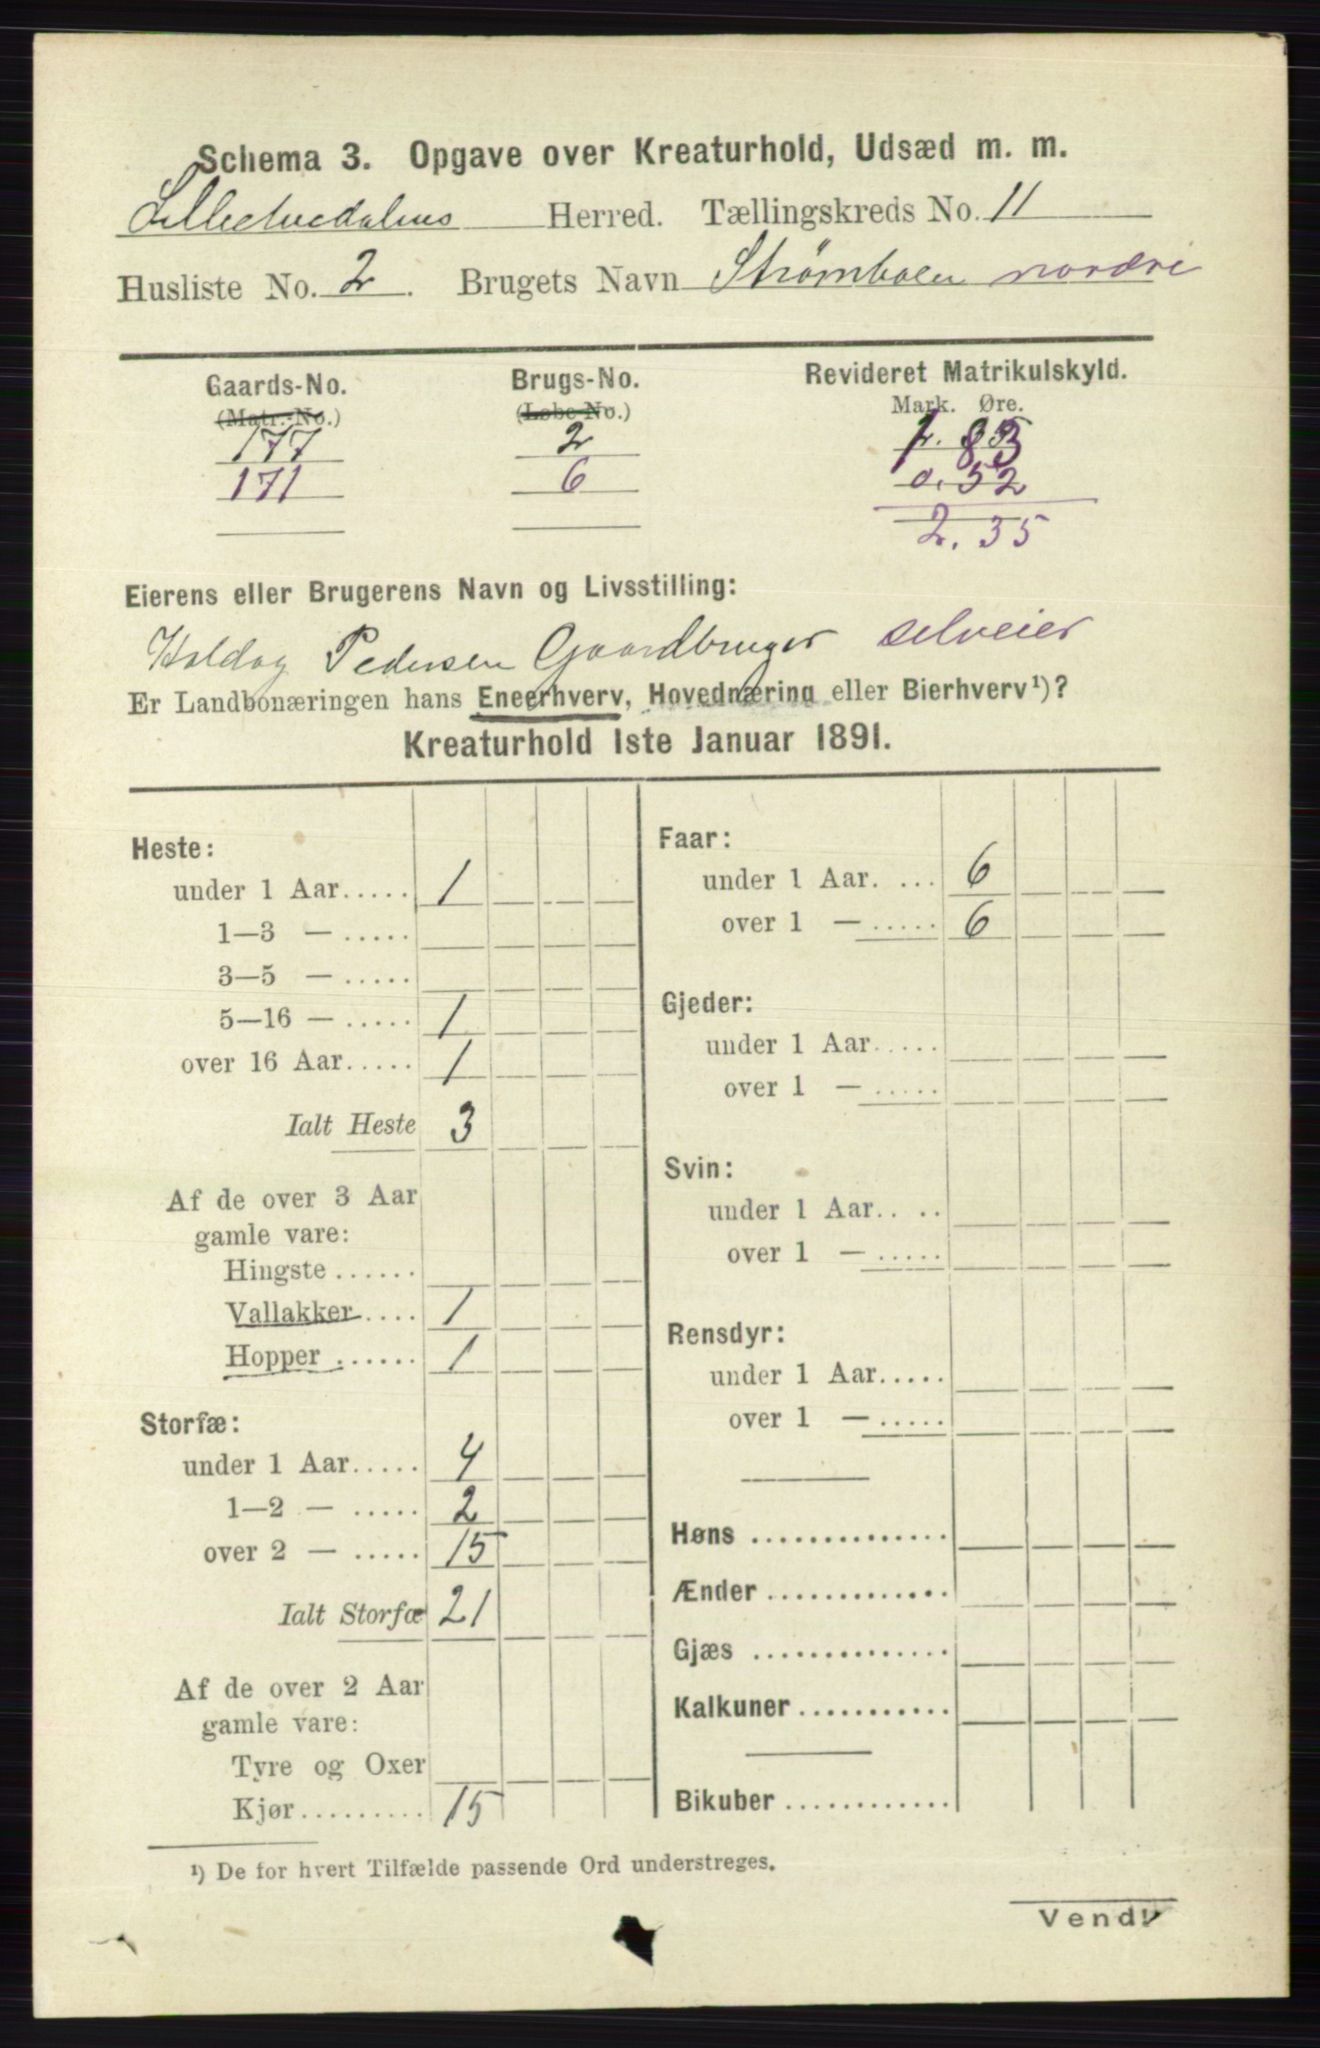 Schema 3. Opgave over Kreaturhold, Udsæd m. m.
Lilleelvedalens Herred. Tællingskreds No. 11
Husliste No. 2. Brugets Navn Strømboen nordre
Gaards-No. Brugs-No. Revideret Matrikulskyld.
(Matr.-No.) (Løbe-No.) Mark. Øre.
177 2 1. 83
171 6 0. 52
2. 35
Eierens eller Brugerens Navn og Livsstilling:
Haldog Pedersen Gaardbruger selveier
Er Landbonæringen hans Eneerhverv, Hovednæring eller Bierhverv¹)?
Kreaturhold 1ste Januar 1891.
Heste:
under 1 Aar..... 1
1—3 — .....
3—5 — .....
5—16 — ..... 1
over 16 Aar..... 1
Ialt Heste 3
Af de over 3 Aar
gamle vare:
Hingste......
Vallakker.... 1
Hopper ...... 1
Storfæ:
under 1 Aar..... 4
1—2 — ..... 2
over 2 — ..... 15
Ialt Storfæ 21
Af de over 2 Aar
gamle vare:
Tyre og Oxer
Kjør......... 15
Faar:
under 1 Aar. ... 6
over 1 — ..... 6
Gjeder:
under 1 Aar.....
over 1 — .....
Svin:
under 1 Aar.. ..
over 1 — .....
Rensdyr:
under 1 Aar.....
over 1 — .....
Høns ..............
Ænder .............
Gjæs ..............
Kalkuner ...........
Bikuber ............
¹) De for hvert Tilfælde passende Ord understreges.
Vend!